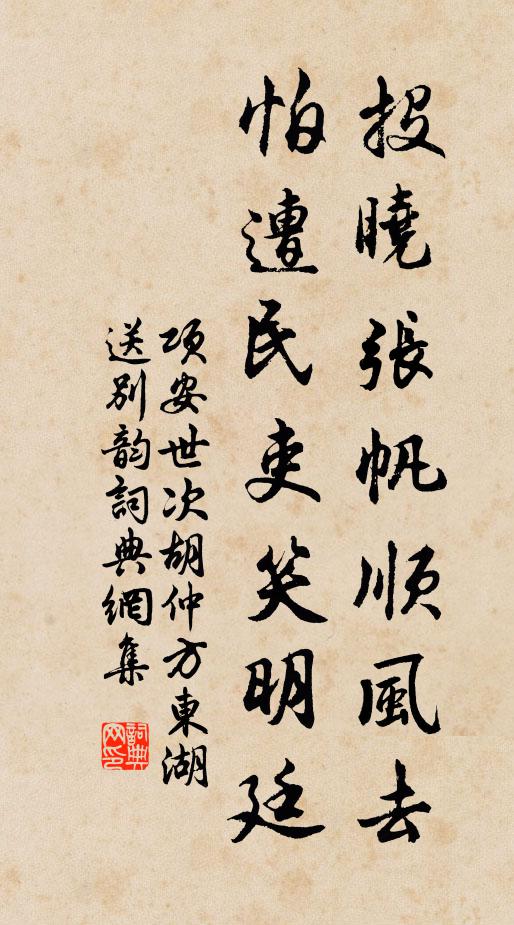 投曉張帆順風去
怕遭民吏笑明廷
項安世次胡仲方東湖
送別韵詞典網集
詞典网印